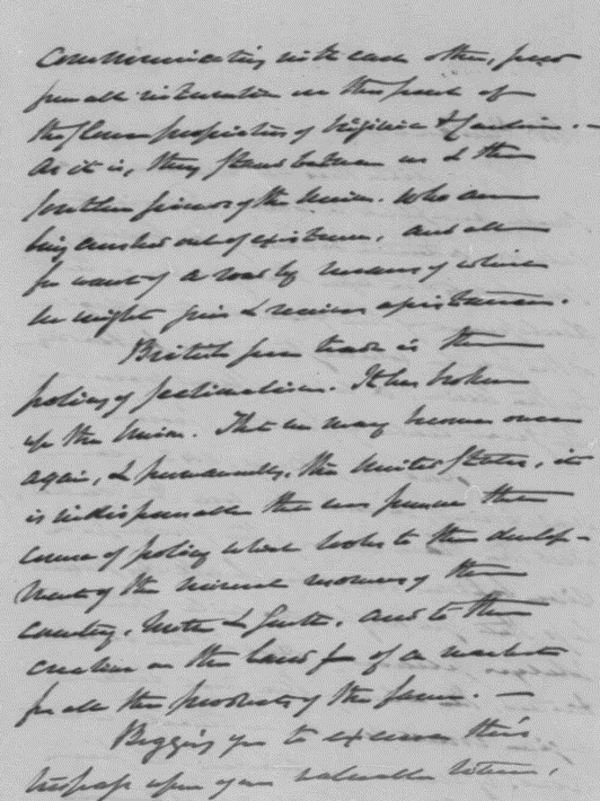 Communicating with each other, free
from all interruption on the part of
the slave proprietors of Virginia & Carolina. —
As it is, they stand between us & the
southern friends of the Union. who are
being crushed out of existence, and all
for want of a road by means of which
he might give & receive assistance.
British free trade is the
policy of sectionalism. It has broken
up the Union. That we may become once
again, & permanently, the United States, it
is indispensable that we pursue the
course of policy which looks to the develop-
ment of the mineral resources of the
country, North & South, and to the
creation on the land of a market
for all the products of the farm. —
Begging you to excuse this
trespass upon your valuable time,